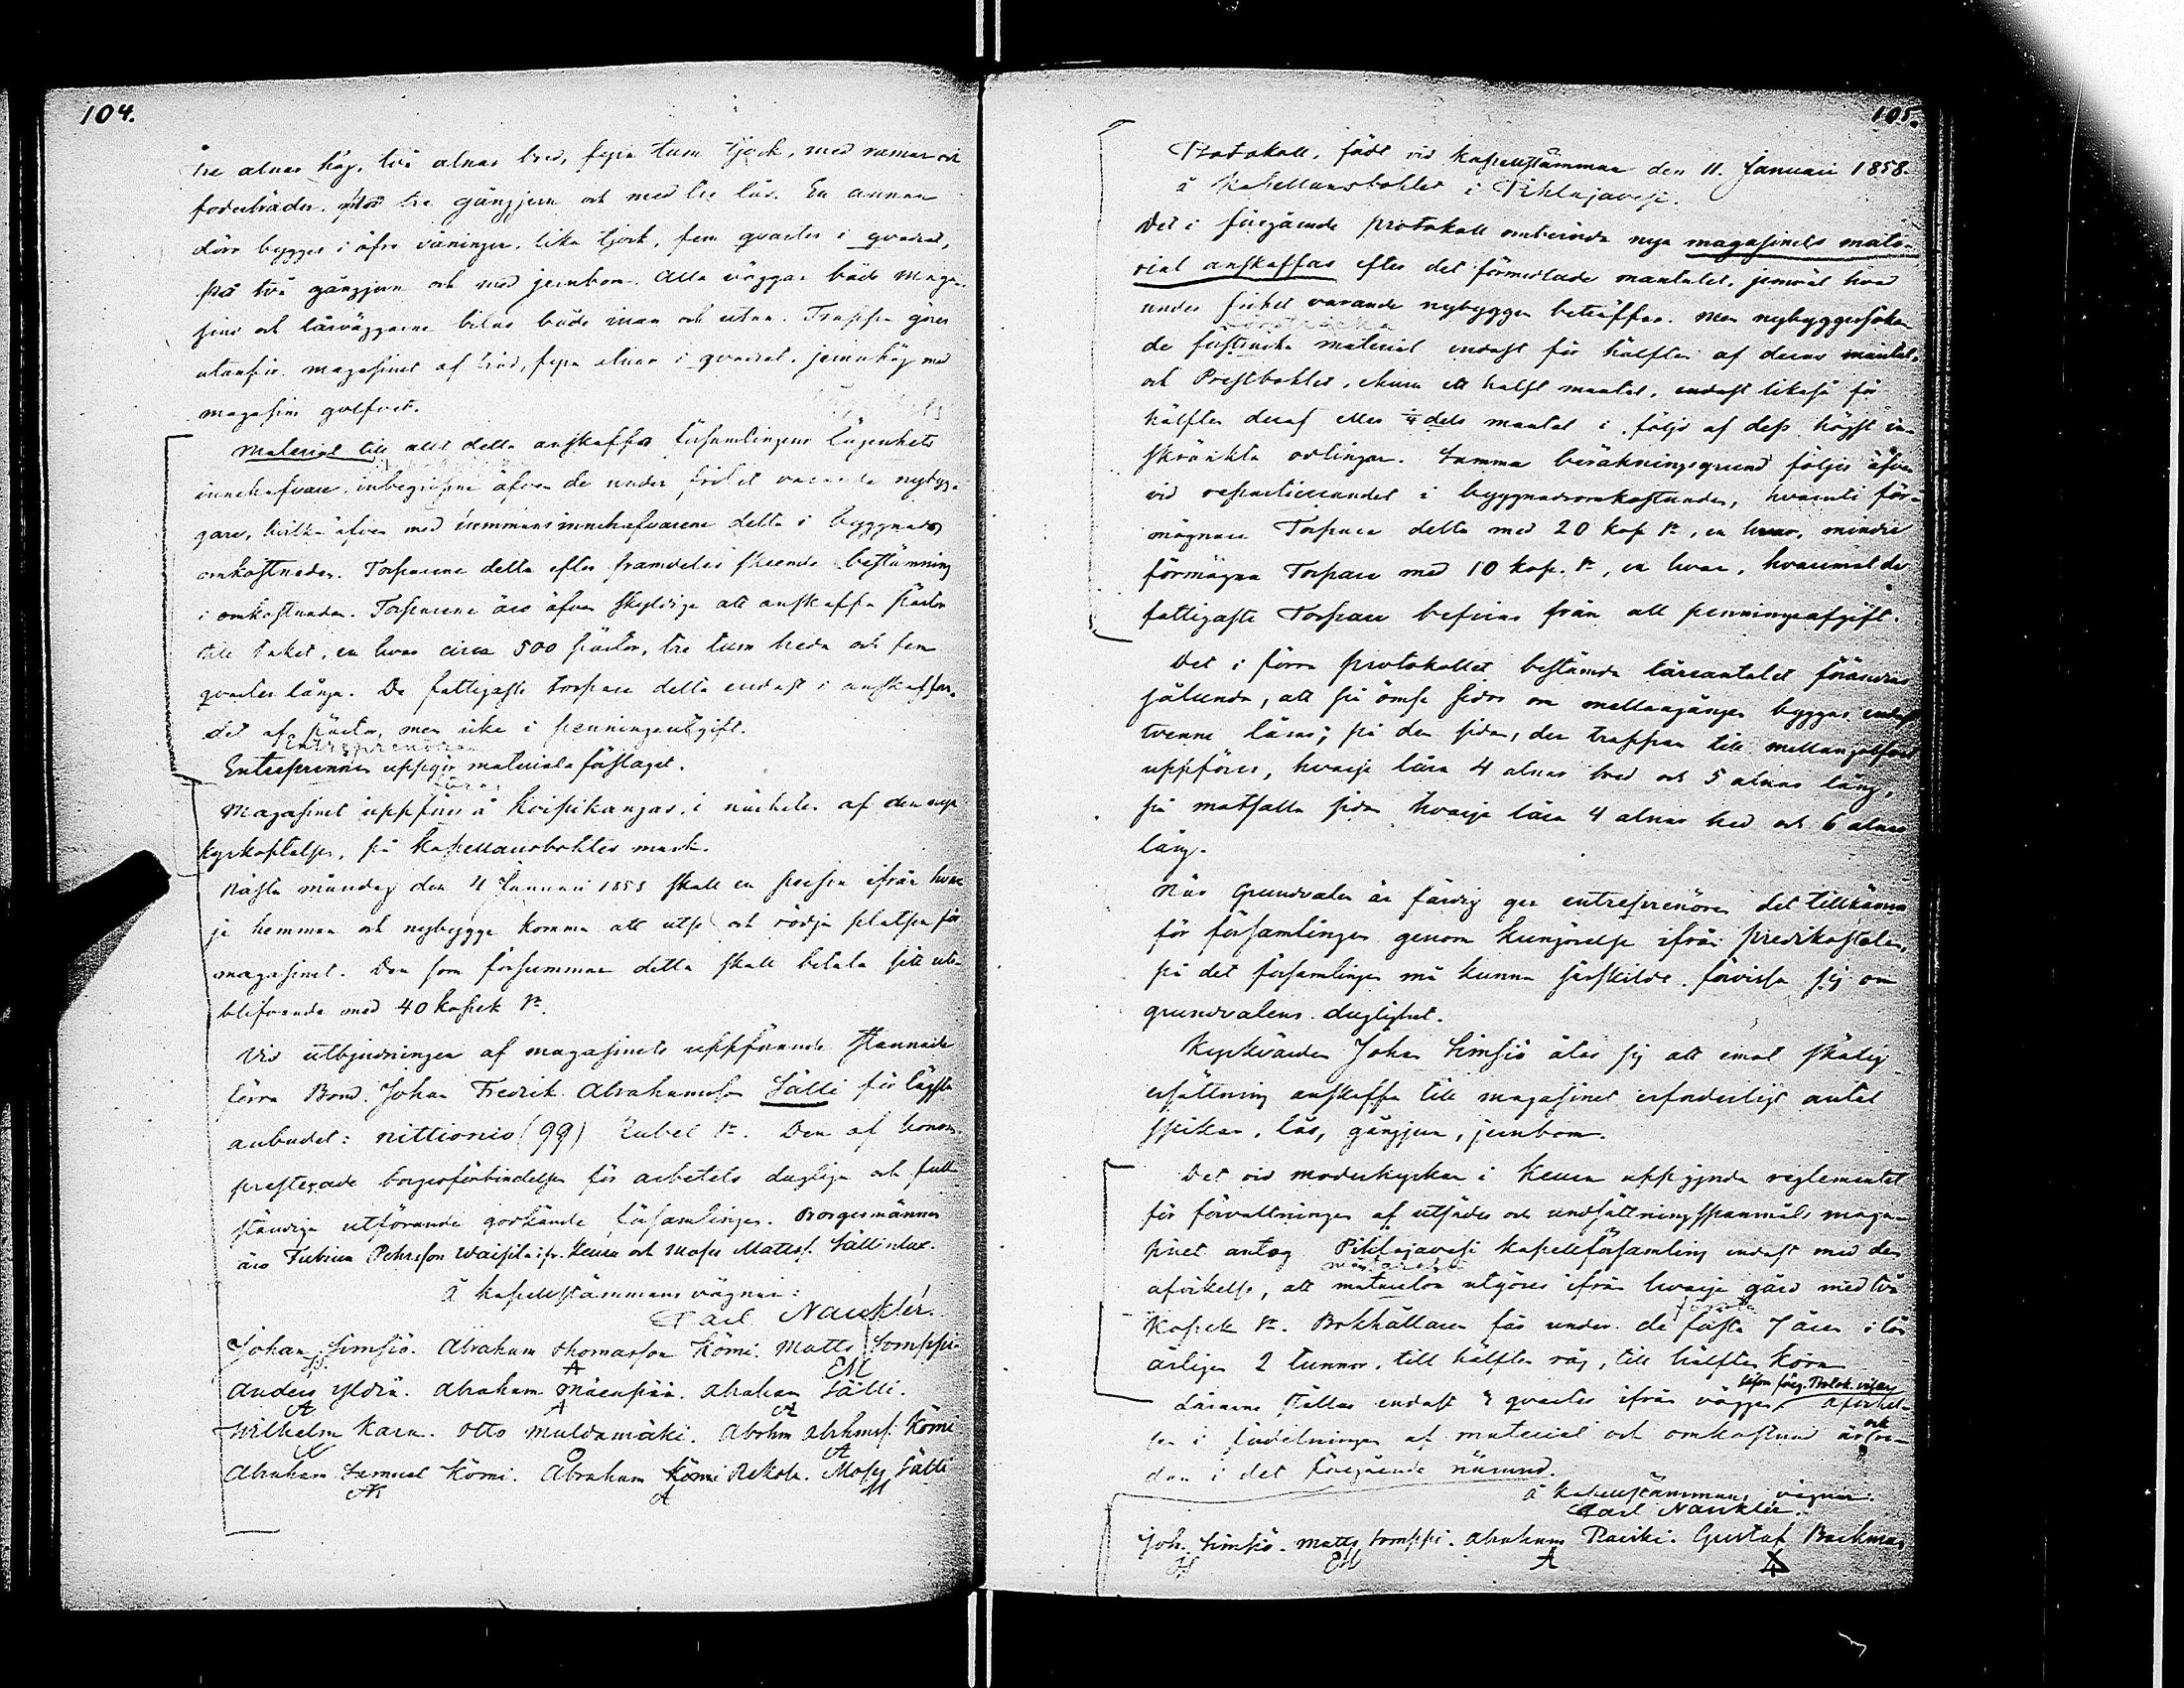 104.
tre alnar hög, två alnar bred, fyra tum tjock, med ramar och
foderbräder, på tre gångjern och med tre lås. En annan
dörr bygges i öfre våningen, lika tjock, fem qvarter i qvadrat,
på två gångjern och med jernbom. Alla väggar både maga-
sins och lårväggarne bilas både innan och utan. Trappa göres
utanför magasinet af träd, fyra alnar i qvadrat, jemnhög med
magasins golfvet.
Material till allt detta anskaffa församlingens lägenhets
innehafvare, inbegripne äfven de under frihet varande nybyg-
gare, hvilka äfven med hemmansinnehafvarene delta i byggnads
omkostnaden. Torparene delta efter framdeles skeende bestämning
i omkostnaden. Torparene äro äfven skyldige att anskaffa pärtor
till taket, en hvar circa 500 pärtor, tre tum breda och fem
qvarter långa. De fattigaste torpare delta endast i anskaffan-
det af pärtor, men icke i penningeutgift.
Entreprenören
Entreprennen uppgör materialsförslaget.
Magasinet uppföres å Koipikangas, i närheten af den nya
kyrkoplatsen, på Kapellansbohlets mark.
Nästa måndag den 4 Januari 1858 skall en person ifrån hvar-
je hemman och nybygge komma att utse och rödja platsen för
magasinet. Den som försummar detta skall betala sitt ute-
blifvande med 40 kopek Sr.
Vid utbjudningen af magasinets uppförande stannade
förra Bond. Johan Fredrik Abrahamsson Sälli för lägsta
anbudet: nittionio (99) Rubel Sr. Den af honom
presterade borgesförbindelsen för arbetets dugliga och full-
ständiga utförande godkände församlingen. Borgesmännen
äro Fabian Pehrsson Waissila ifr. Keuru och Moses Mattss. Sällinlax.
Å kapellstämmans vägnar:
Carl Nauklér.
Johan Simsiö. Abraham Thomasson Kömi. Matts Somppi.
JS A EM
Anders Yldrä. Abraham Mäenpää. Abraham Sälli.
A A A
Wilhelm Kara. Otto Muldamäki. Abrhm Abrhmss. Kömi
O A
Abraham Samuel Kömi. Abraham Kömi Rekola. Moses Sälli
AK A M
105.
Protokoll, fördt vid kapellstämman den 11. Januari 1858.
å Kapellansbohlet i Pihlajavesi.
Det i föregående protokoll omtvistade nya magasinets mate-
rial anskaffas efter det förmedlade mantalet, jemväl hvad
under frihet varande nybyggen beträffar. Men nybyggessökan-
de förstrecka material endast för hälften af deras mantal,
och Prestbohlet, ehuru ett halft mantal, endast likaså för
hälften deraf eller 1/4 dels mantal i följd af dess högst in-
skränkta odlingar. Samma beräkningsgrund följes äfven
vid repartierandet i byggnadsomkostnaden, hvaruti för-
mögnare Torpare delta med 20 kop Sr, en hvar, mindre
förmögna Torpare med 10 kop. Sr, en hvar, hvaremot de
fattigaste Torpare befrias från all penningeafgift.
Det i förra protokollet bestämda låreantalet förändras
sålunda, att på ömse sidor om mellangången byggas endast
tvenne lårar; på den sidan, der trappan till mellangolfvet
uppföres, hvarje lår 4 alnar bred och 5 alnar lång,
på motsatta sidan hvarje lår 4 alnar bred och 6 alnar
lång.
När Grundvalen är färdig ger entreprenören det tillkänna
för församlingen genom kungörelse ifrån predikostolen,
på det församlingen må kunna särskildt förvissa sig om
grundvalens duglighet.
Kyrkvärden Johan Simsiö åtar sig att emot skälig
ersättning anskaffa till magasinet erforderligt antal
spikar, lås, gångjern, jernbom.
Det vid moderkyrkan i Keuru uppgjorda reglementet
för förvaltningen af utsädes och undsättningsspanmåls maga-
sinet antog Pihlajavesi kapellförsamling endast med den
afvikelse, att mätarelön utgöres ifrån hvarje gård med två
Kopek Sr. Bokhållaren får under de första 7 åren i lön
årligen 2 tunnor, till hälften råg, till hälften korn
Lårarne ställas endast 3 qvarter ifrån väggen, såsom föreg. Protok. visar afvikel-
sen i fördelningen af material och omkostnad är ock re-
dan i det föregående nämnd.
Å kapellstämmans vägnar.
Carl Nauklér.
Joh. Simsiö. Matts Somppi. Abraham Raiski. Gustaf Backman
JS EM A